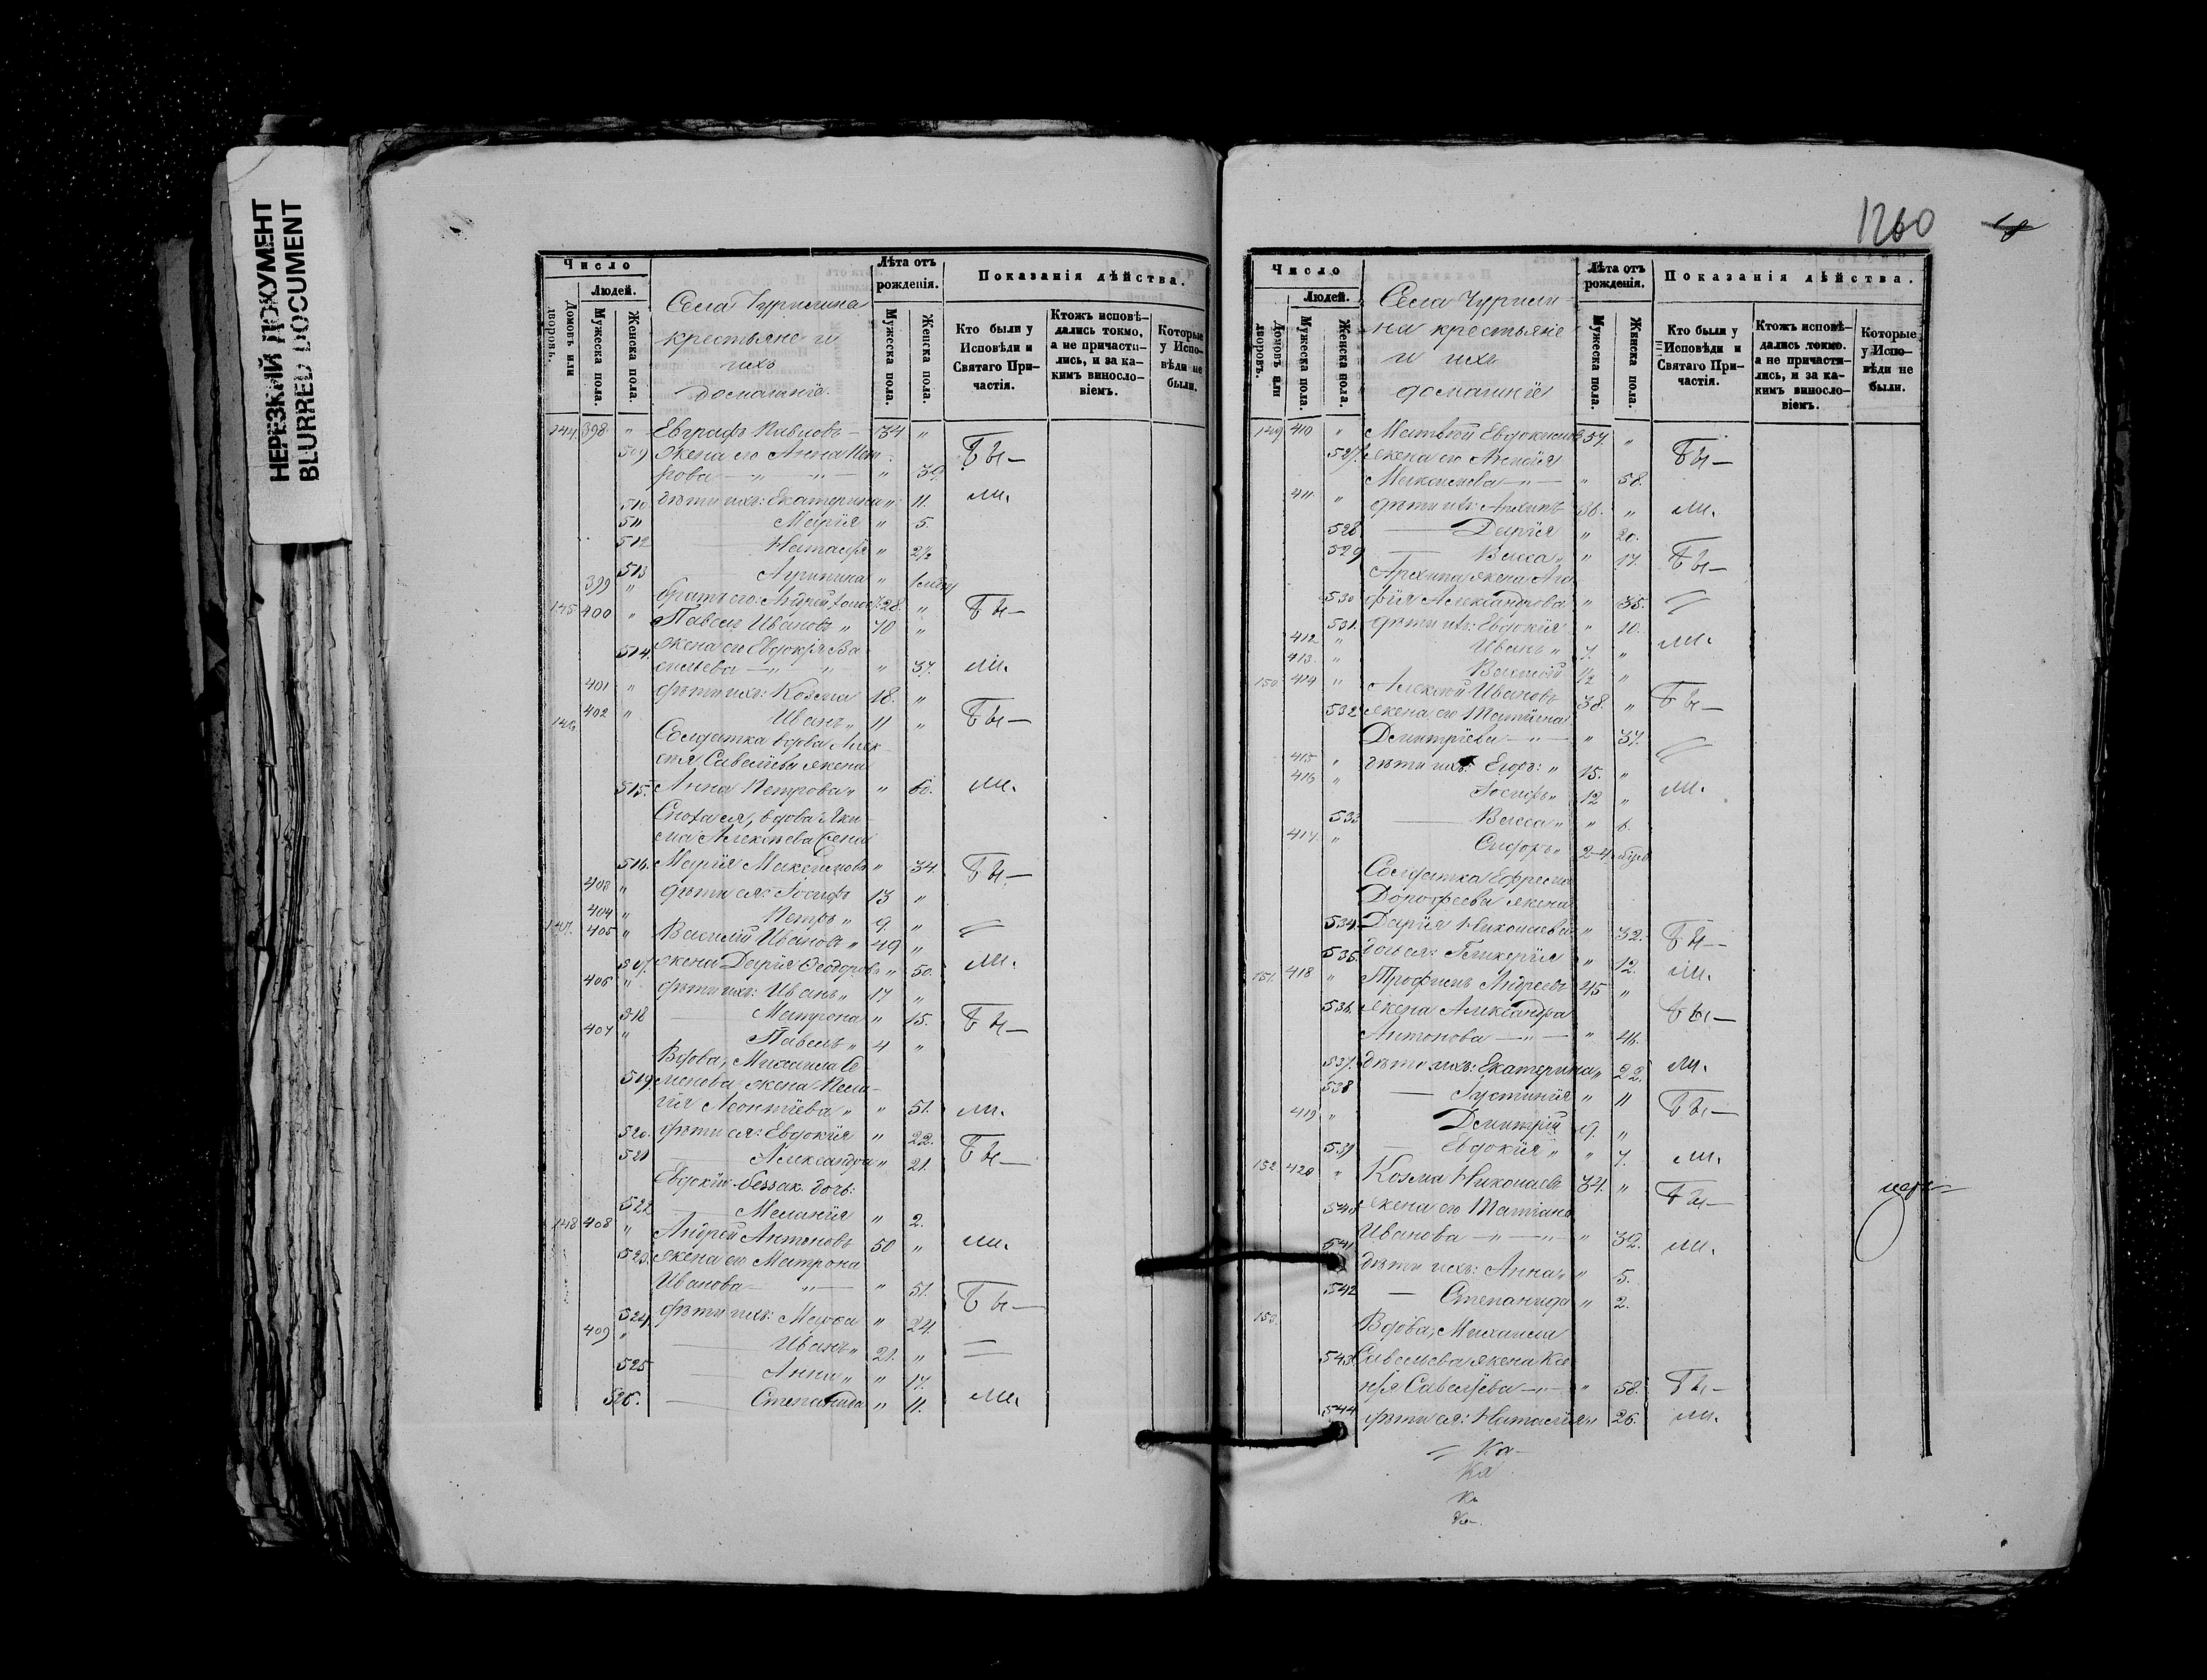 НЕРЕЗКИЙ ДОКУМЕНТ
BLURRED DOCUMENT
Число
Людей.
Домовъ или дворовъ.
Мужеска пола.
Женска пола.
Села Чурилина
крестьяне и
ихъ
домашніе.
Лѣта отъ рожденія.
Мужеска пола.
Женска пола.
Показанія дѣйства.
Кто были у Исповѣди и Святаго Причастія.
Ктожъ исповѣдались токмо, а не причастились, и за какимъ винословіемъ.
Которые у Исповѣди не были.
144. 398. " Евграфъ Павловъ — 34 "
509 жена его Анна Пет- Бы—
рова — " — " 39.
510 дѣти ихъ: Екатерина " 11. ли.
511 Марія " 5.
512 Наталія " 2½
513 Агрипина "
399 " братъ его: Андрей 28. "
145 400 " Павелъ Ивановъ " 40 " Бы—
514. жена его Евдокія Ва
сильева — " " 37. ли.
401 " дѣти ихъ: Козма 18. "
402 " Иванъ " 11 " Бы—
146 Солдатка вдова Алек-
сѣя Савельева жена
515. Анна Петрова " " 60. ли.
Сноха ея, вдова Яки-
ма Алексѣева жена
516. Марія Максимова " 34. Бы—
403 " дѣти ея: Іосифъ 13 "
404 " Петръ " 9. "
147. 405 " Василій Ивановъ " 49 "
517. жена Дарія Ѳеодорова " 50. ли.
406 " дѣти ихъ: Иванъ " 17 "
518 Матрона " 15. Бы—
407 " Павелъ " 4 "
Вдова, Михаила Се
519. менова жена Пела-
гія Леонтіева " " 51. ли.
520. дѣти ея: Евдокія " 22. Бы—
521 Александра " 21.
Евдокіи беззак. дочь:
522 Меланія " 2.
148 408 " Андрей Антоновъ 50 " ли.
523. жена его Матрона
Иванова — " — " 51. Бы—
524. дѣти ихъ: Марѳа " 24.
409 " Иванъ " 21. "
525 Анна " " 17.
526. Степанида " 11. ли.
1260
Число
Людей.
Домовъ или дворовъ.
Мужеска пола.
Женска пола.
Села Чурили-
на крестьяне
и ихъ
домашніе
Лѣта отъ рожденія.
Мужеска пола.
Женска пола.
Показанія дѣйства.
Кто были у Исповѣди и Святаго Причастія.
Ктожъ исповѣдались токмо, а не причастились, и за какимъ винословіемъ.
Которые у Исповѣди не были.
149 410 " Матвѣй Евдокимовъ 57. "
527. жена его Анисія Бы—
Максимова — " — " 58.
411. " дѣти ихъ: Архипъ 36. " ли.
528. Дарія " 20.
529 Васса " " 17. Бы—
Архипа жена Ага
530 фія Александрова " 35.
531. дѣти ихъ: Евдокія " 10.
412 " Иванъ " 7. " ли.
413. " Василій ½ "
150 414 " Алексѣй Ивановъ 38. " Бы—
532 жена его Татіана
Дмитріева — " — " 37.
415 " дѣти ихъ: Егоръ: " 15. "
416 " Іосифъ " 12 " ли.
533 Васса " " 6.
417. " Сидоръ "
Солдатка Ефрема
Дорофеева жена
534. Дарія Николаева " 32. Бы—
535. дочь ея: Гликерія " 12. ли.
151. 418 " Трофимъ Андреевъ 45 "
536. жена Александра Бы—
Антонова — " — " 46.
537. дѣти ихъ: Екатерина " 22. ли.
538 Іустинія " 11 Бы—
419 " Димитрій 9. "
539 Евдокія " " 7. ли.
152 420 " Козма Николаевъ 34. "
540 жена его Татіана Бы—
Иванова — " — " — " 32. ли.
541 дѣти ихъ: Анна " " 5.
542 — Степанида " 2.
153. Вдова, Михаила
543 Савельева жена Ксе
нія Савельева — " — " 58. Бы—
544 дѣти ея: Наталія " 26. ли.